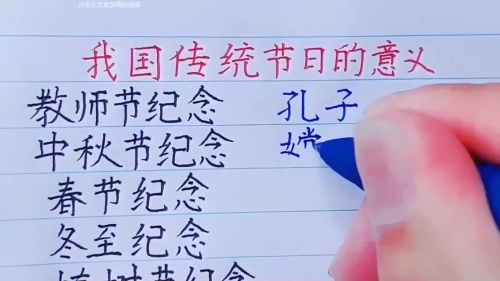 我国传统节日的意义
教师节纪念 孔子
中秋节纪念 嫦
春节纪念
冬至纪念
植树节纪念